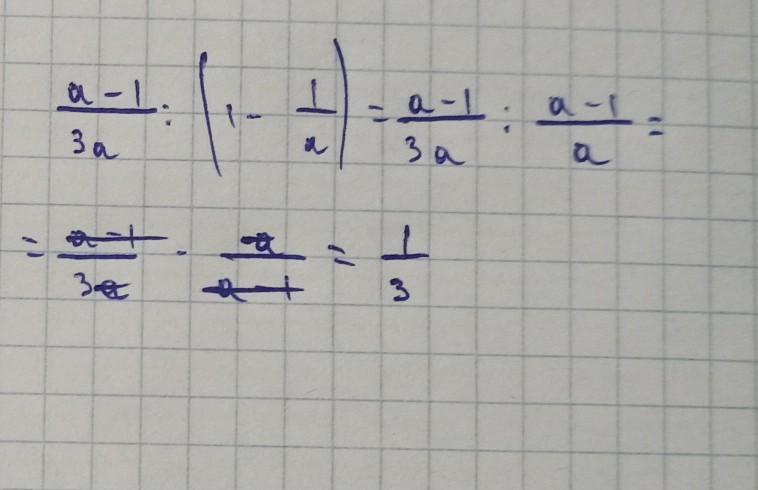 \frac{a-1}{3a} : \left(1 - \frac{1}{a}\right) = \frac{a-1}{3a} : \frac{a-1}{a} =
= \frac{\cancel{a-1}}{3\cancel{a}} \cdot \frac{\cancel{a}}{\cancel{a-1}} = \frac{1}{3}